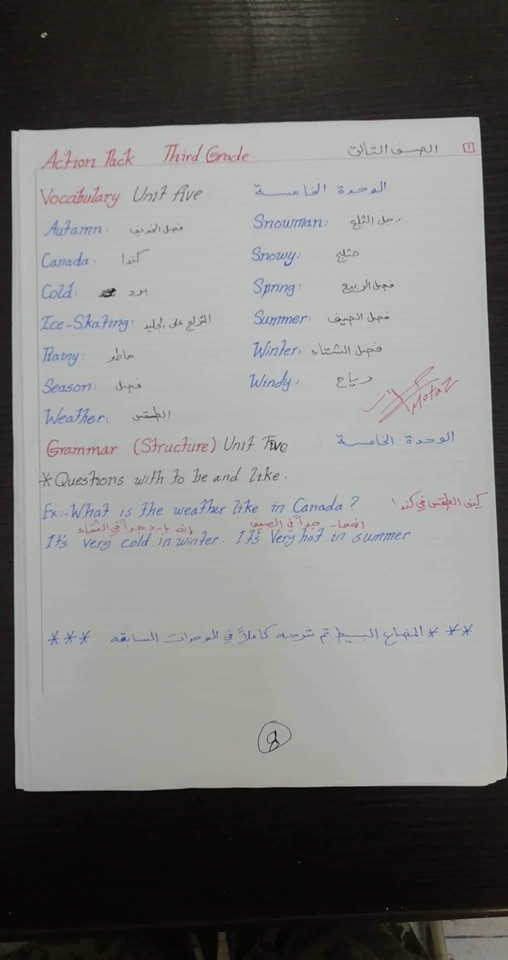 Action Pack Third Grade الصف الثالث 1
Vocabulary Unit five الوحدة الخامسة
Autamn: فصل الخريف Snowman: رجل الثلج
Canada: كندا Snowy: مثلج
Cold: برد Spring: فصل الربيع
Ice-Skating: التزلج على الجليد Summer: فصل الصيف
Rainy: ماطر Winter: فصل الشتاء
Season: فصل Windy: رياح
Motaz
Weather: الطقس
Grammar (Structure) Unit Five الوحدة الخامسة
*Questions with to be and like.
Ex:- What is the weather like in Canada? كيف الطقس في كندا
إنه بارد جداً في الشتاء إنه حار جداً في الصيف
It's very cold in winter. It's Very hot in summer
*** المضارع البسيط تم شرحه كاملاً في الوحدات السابقه ***